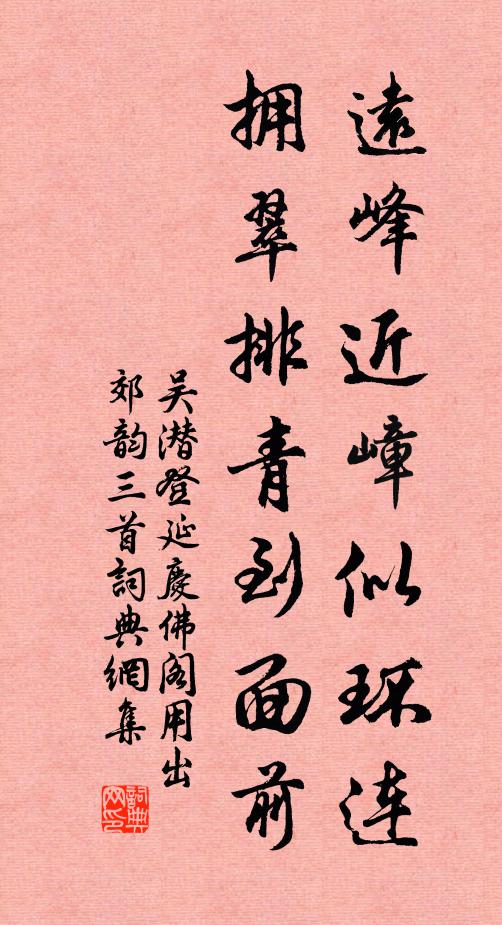 遠峰近嶂似環連
拥翠排青到面前
吴潜登延慶佛阁用出
郊韵三首詞典網集
詞典网印